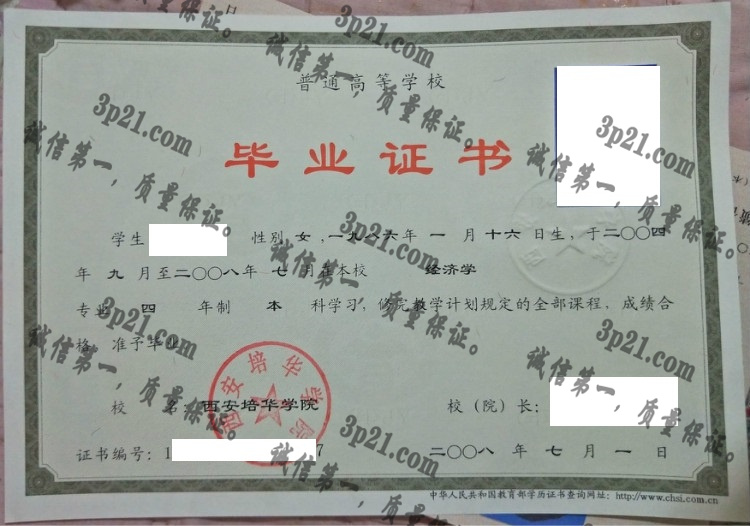 普通高等学校
毕业证书
学生 性别 女，一九八六年 一 月 十六 日生，于二〇〇四
年 九 月至二〇〇八年 七 月在本校 经济学
专业 四 年制 本 科学习，修完教学计划规定的全部课程，成绩合
格，准予毕业。
校 名：西安培华学院 校（院）长：
西安培华学院
证书编号：1 7 二〇〇八 年 七 月 一 日
中华人民共和国教育部学历证书查询网址：http://www.chsi.com.cn
3p21.com
诚信第一，质量保证。
3p21.com
诚信第一，质量保证。
3p21.com
诚信第一，质量保证。
3p21.com
诚信第一，质量保证。
3p21.com
诚信第一，质量保证。
3p21.com
诚信第一，质量保证。
3p21.com
诚信第一，质量保证。
3p21.com
诚信第一，质量保证。